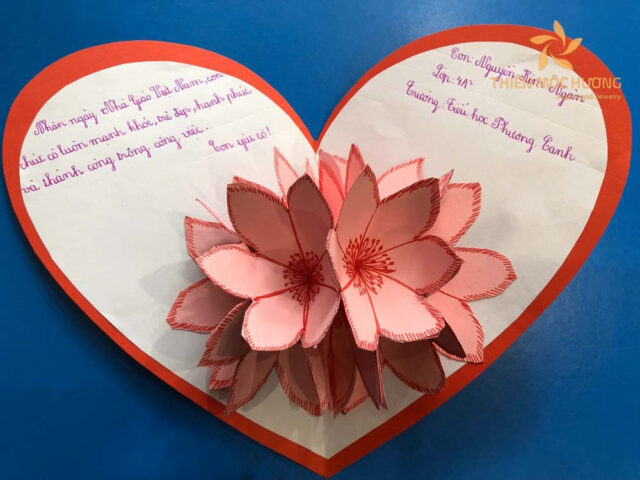 Nhân ngày Nhà Giáo Việt Nam, con
chúc cô luôn mạnh khỏe, trẻ đẹp, hạnh phúc
và thành công trong công việc.
Con yêu cô!
Con: Nguyễn Kim Ngân
Lớp: 4A²
Trường: Tiểu học Phương Canh
THIÊN MỘC HƯƠNG